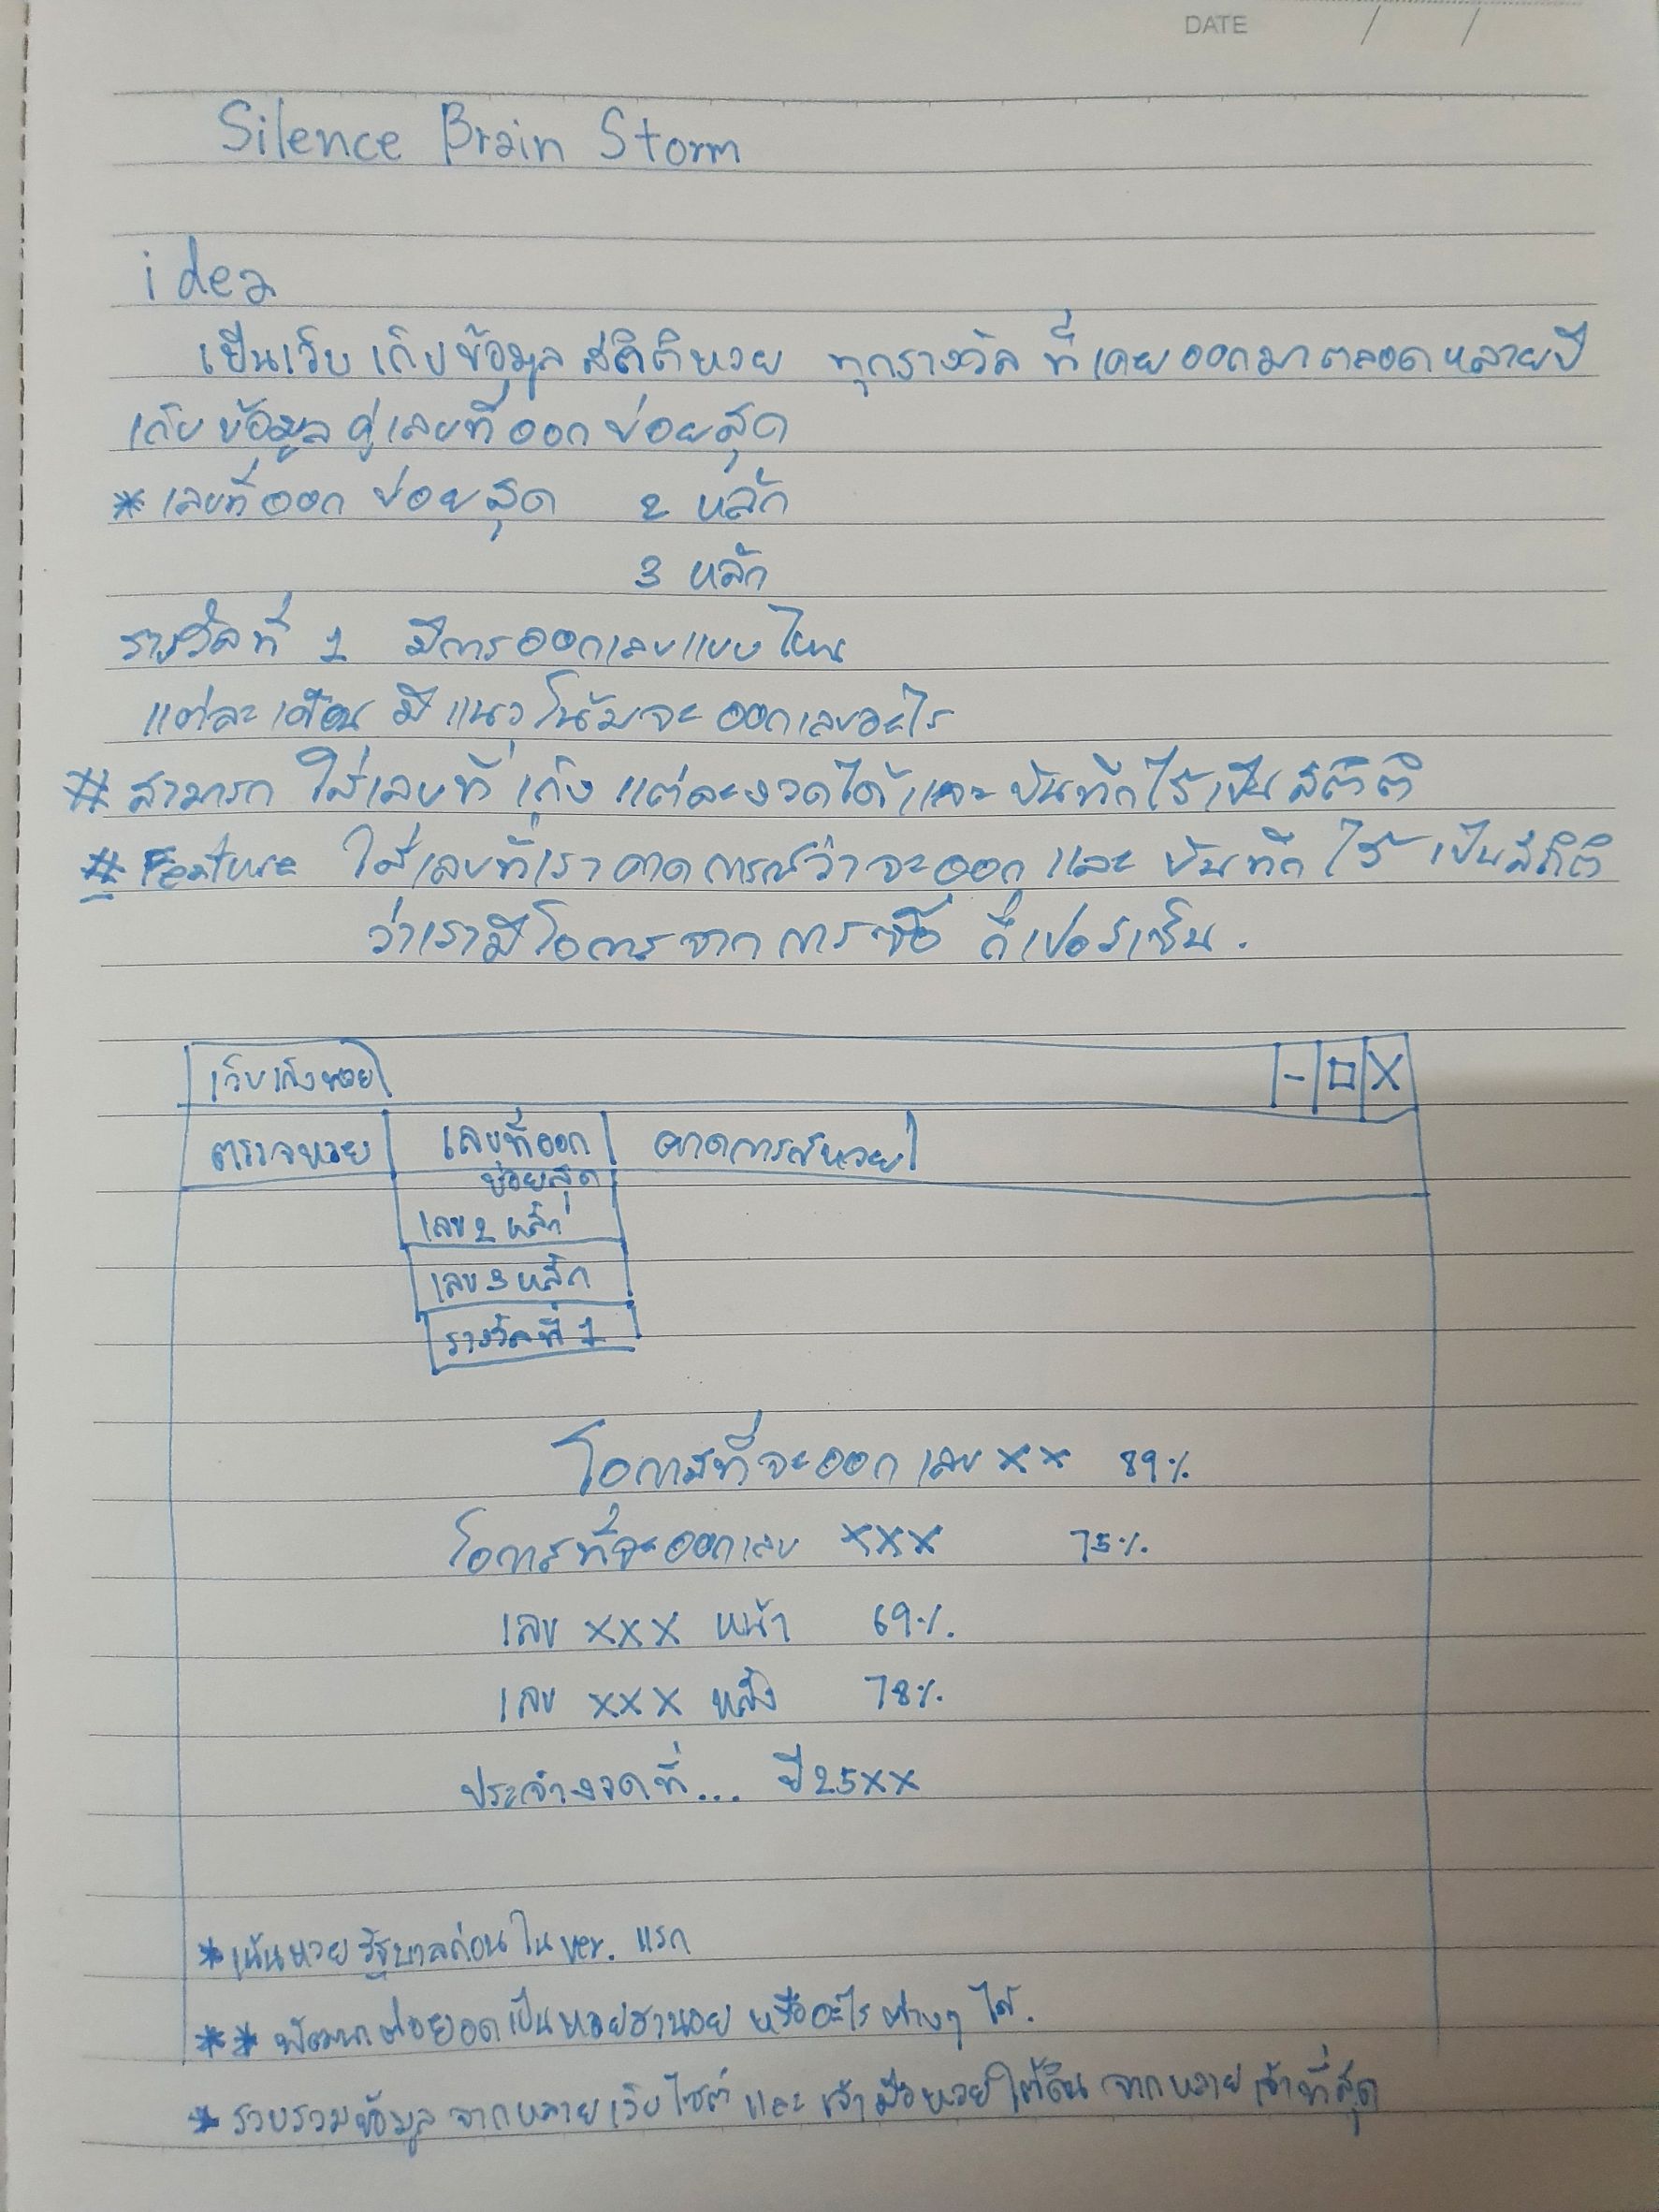 DATE / /
Silence Brain Storm
idea
เป็นเว็บ เก็บข้อมูล สถิติหวย ทุกรางวัล ที่เคยออกมาตลอดหลายปี
เก็บข้อมูล คู่เลขที่ออกบ่อยสุด
* เลขที่ออก บ่อยสุด 2 หลัก
3 หลัก
รางวัลที่ 1 มีการออกเลขแบบไหน
แต่ละเดือน มีแนวโน้มจะออกเลขอะไร
# สามารถ ใส่เลขที่ เก็ง แต่ละงวดได้ และ บันทึกไว้เป็นสถิติ
# Feature ใส่เลขที่เราคาดการณ์ว่าจะออก และ บันทึก ไว้ เป็นสถิติ
ว่าเรามีโอกาส จากการซื้อ กี่เปอร์เซ็น.
เว็บเก็งหวย - □ X
ตรวจหวย เลขที่ออก คาดการณ์หวย
บ่อยสุด
เลข 2 หลัก
เลข 3 หลัก
รางวัลที่ 1
โอกาสที่จะออก เลข xx 89%
โอกาสที่จะออกเลข xxx 75%
เลข xxx หน้า 69%
เลข xxx หลัง 78%
ประจำงวดที่... ปี 25xx
* เน้นหวยรัฐบาลก่อน ใน ver. แรก
** พัฒนาต่อยอดเป็นหวยฮานอย หรืออะไร ต่างๆ ได้.
* รวบรวมข้อมูล จากหลายเว็บไซต์ และ เจ้ามือหวยใต้ดิน จากหลายเจ้าที่สุด